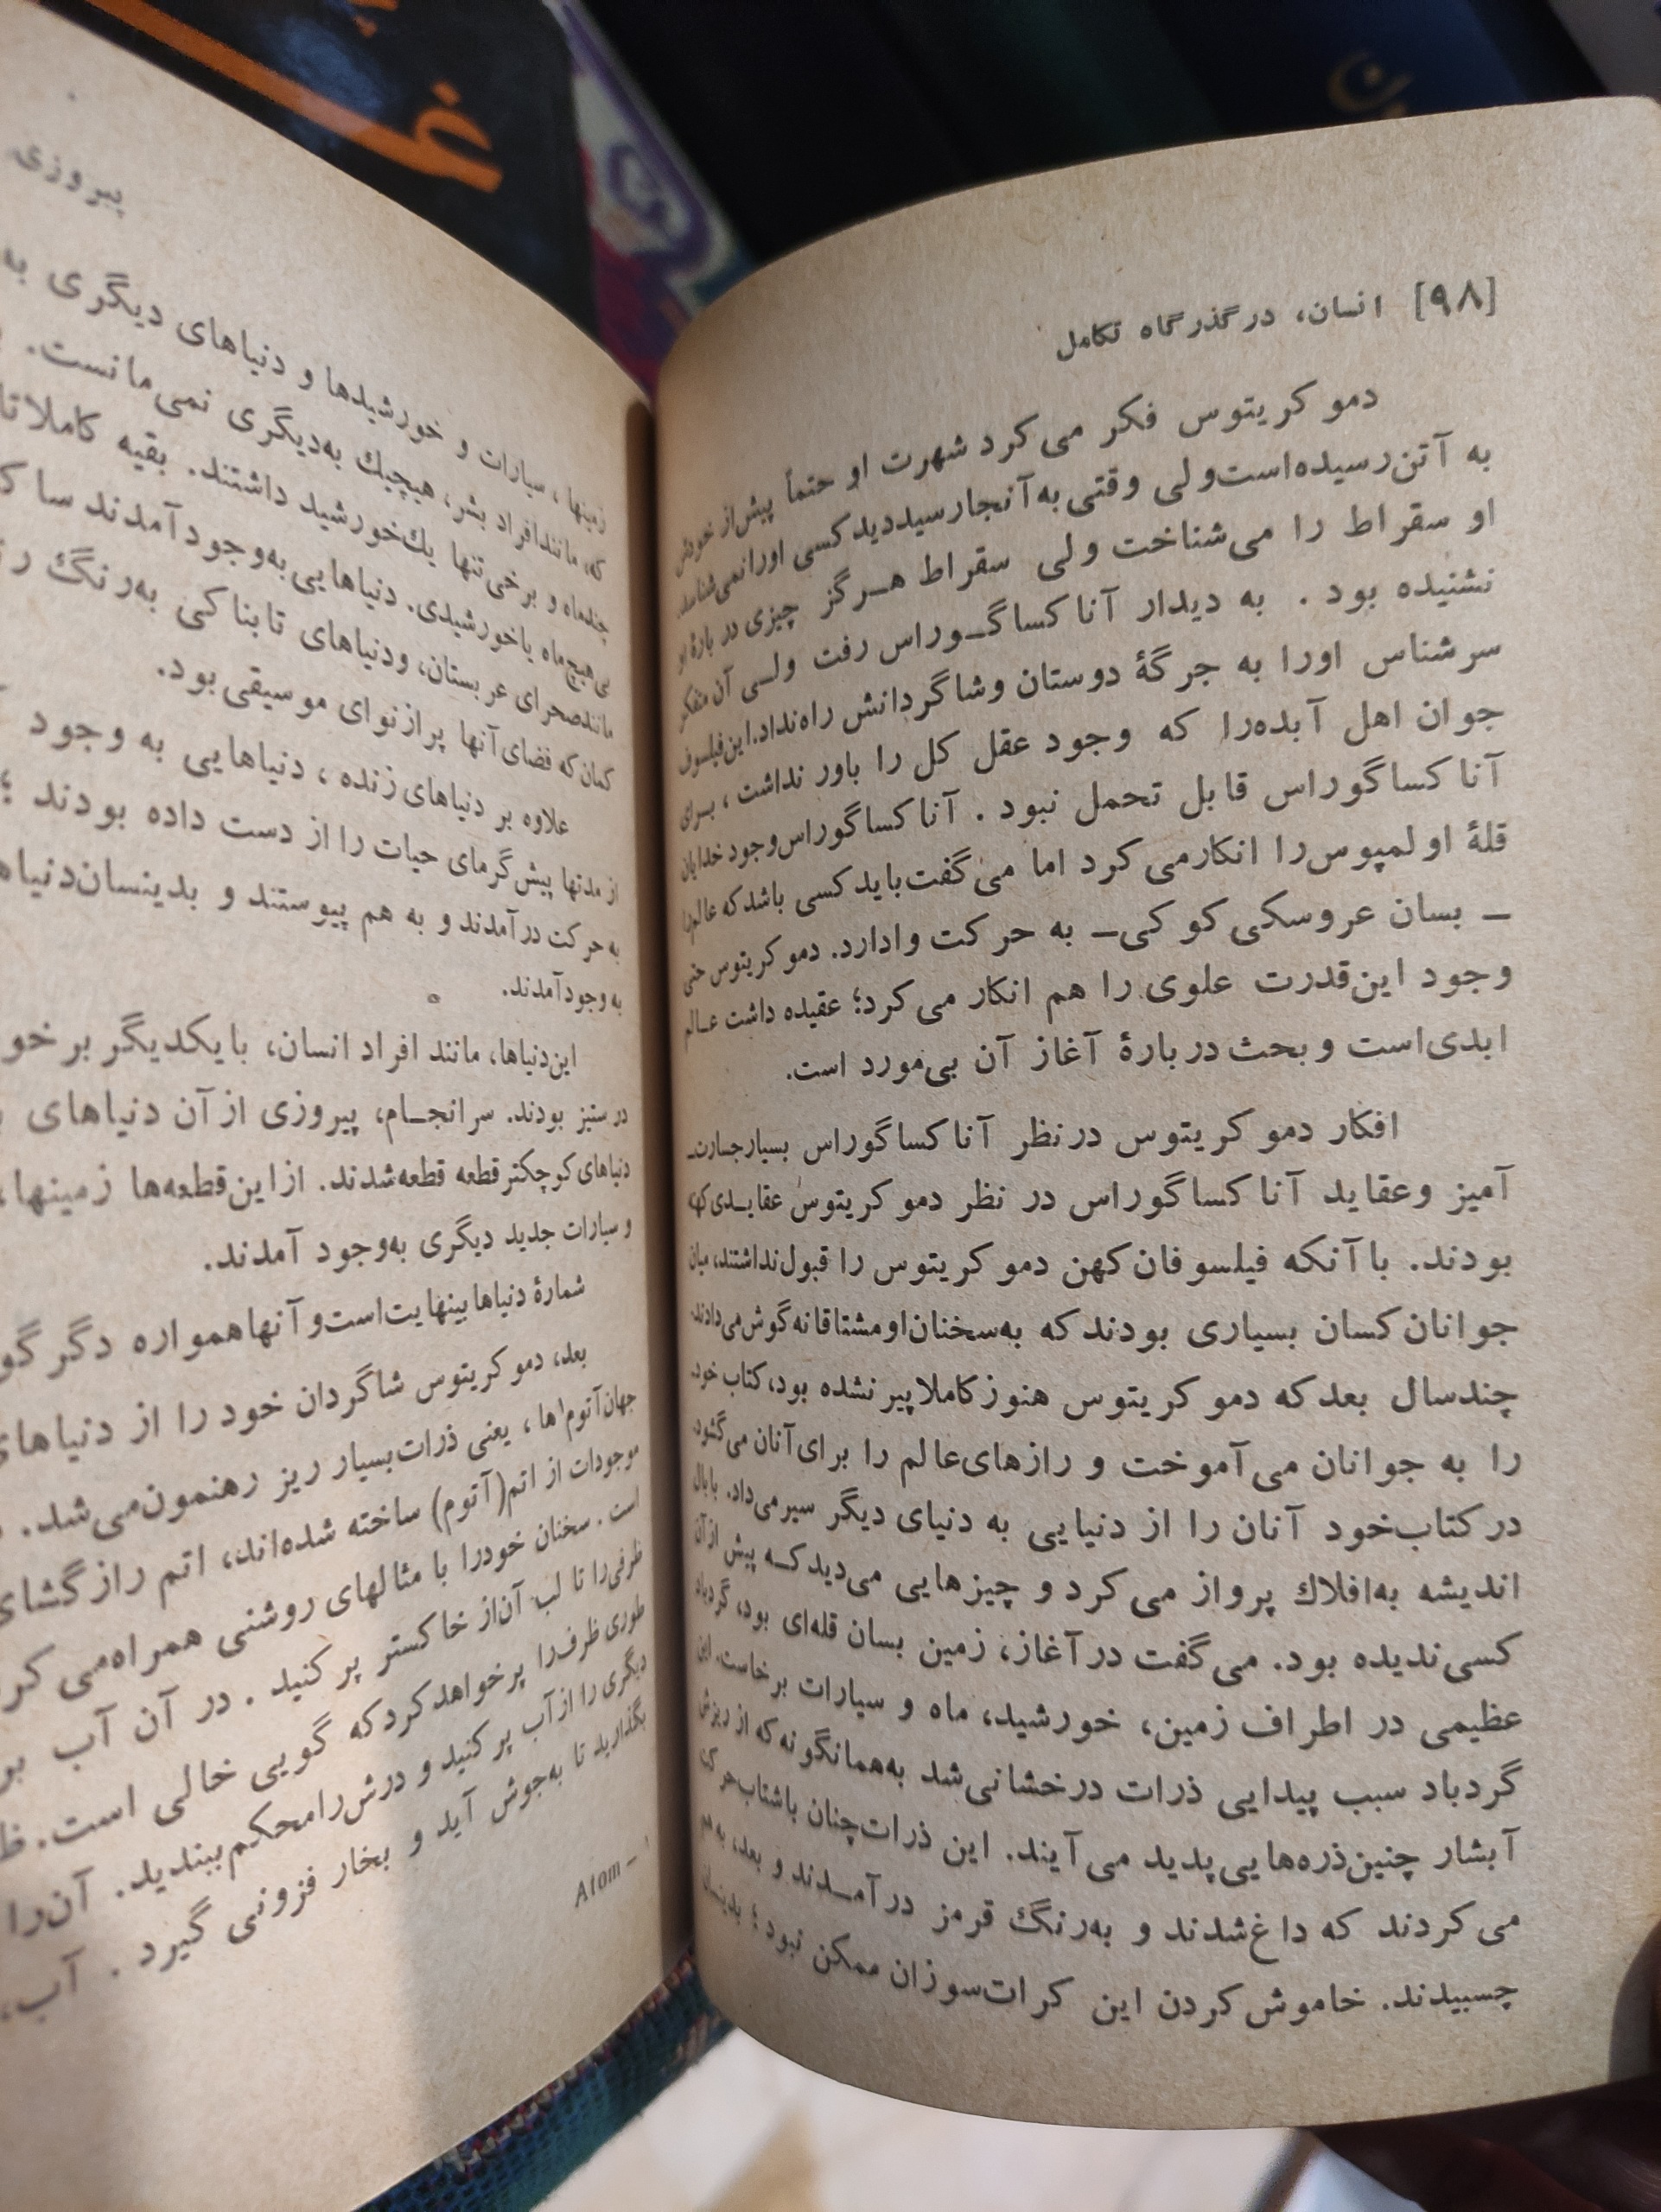 [۹۸] انسان، در گذرگاه تکامل
دموکریتوس فکر می‌کرد شهرت او حتماً پیش‌از خودش
به آتن‌رسیده‌است‌ولی وقتی‌به‌آنجارسیددیدکسی اورانمی‌شناسد.
او سقراط را می‌شناخت ولی سقراط هرگز چیزی در بارهٔ او
نشنیده بود . به دیدار آناکساگوراس رفت ولی آن متفکر
سرشناس اورا به جرگهٔ دوستان وشاگردانش راه‌نداد.این‌فیلسوف
جوان اهل آبده‌را که وجود عقل کل را باور نداشت ، برای
آناکساگوراس قابل تحمل نبود . آناکساگوراس‌وجود خدایان
قلهٔ اولمپوس‌را انکارمی‌کرد اما می‌گفت‌بایدکسی باشدکه عالم‌را
ـ بسان عروسکی‌کوکی‌ـ به حرکت وادارد. دموکریتوس حتی
وجود این‌قدرت علوی را هم انکار می‌کرد؛ عقیده داشت عالم
ابدی‌است و بحث دربارهٔ آغاز آن بی‌مورد است.
افکار دموکریتوس درنظر آناکساگوراس بسیارجسارت‌ـ
آمیز وعقاید آناکساگوراس در نظر دموکریتوس عقایدی‌کهنه
بودند. باآنکه فیلسوفان‌کهن دموکریتوس را قبول‌نداشتند، میان
جوانان‌کسان بسیاری بودندکه به‌سخنان‌اومشتاقانه‌گوش‌می‌دادند.
چندسال بعدکه دموکریتوس هنوزکاملاپیرنشده بود، کتاب خود
را به جوانان می‌آموخت و رازهای‌عالم را برای‌آنان می‌گشود.
درکتاب‌خود آنان را از دنیایی به دنیای دیگر سیرمی‌داد. بابال
اندیشه به‌افلاك پرواز می‌کرد و چیزهایی می‌دیدکه پیش ازآن
کسی‌ندیده بود. می‌گفت درآغاز، زمین بسان قله‌ای بود، گردباد
عظیمی در اطراف زمین، خورشید، ماه و سیارات برخاست. این
گردباد سبب پیدایی ذرات درخشانی‌شد به‌همانگونه‌که از ریزش
آبشار چنین‌ذره‌هایی‌پدید می‌آیند. این ذرات‌چنان باشتاب‌حرکت
می‌کردند که داغ‌شدند و به‌رنگ قرمز درآمدند و بعد، به‌هم
چسبیدند. خاموش‌کردن این کرات‌سوزان ممکن نبود ؛ بدینسان
پیروزی
زمینها ، سیارات و خورشیدها و دنیاهای دیگری به
که، مانندافراد بشر، هیچیك به‌دیگری نمی‌مانست.
چندماه و برخی‌تنها یك‌خورشید داشتند. بقیه کاملاتا
بی‌هیچ‌ماه یاخورشیدی. دنیاهایی‌به‌وجودآمدند
مانندصحرای عربستان، ودنیاهای تابناکی به‌رنگ
کمان‌که فضای‌آنها پرازنوای موسیقی‌بود.
علاوه بر دنیاهای‌زنده ، دنیاهایی به وجود
از مدتها پیش‌گرمای حیات را از دست داده بودند ؛
به حرکت درآمدند و به هم پیوستند و بدینسان‌دنیاها
به وجودآمدند.
این‌دنیاها، مانند افراد انسان، بایکدیگر برخو
در ستیز بودند. سرانجام، پیروزی ازآن دنیاهای
دنیاهای‌کوچکترقطعه قطعه‌شدند. ازاین‌قطعه‌ها زمینها،
و سیارات جدید دیگری به‌وجود آمدند.
شمارهٔ دنیاهابینهایت‌است‌وآنهاهمواره دگرگو
بعد، دموکریتوس شاگردان خود را از دنیاهای
جهان‌آتوم۱ها ، یعنی ذرات‌بسیار ریز رهنمون‌می‌شد.
موجودات از اتم(آتوم) ساخته شده‌اند، اتم رازگشای
است . سخنان خودرا با مثالهای روشنی همراه‌می‌کر
ظرفی‌را تا لب آن‌از خاکستر پر کنید . در آن آب بر
طوری ظرف‌را پرخواهدکردکه گویی خالی است.
دیگری را ازآب پر کنید و درش‌رامحکم‌ببندید. آن‌را
بگذارید تا به‌جوش آید و بخار فزونی گیرد . آب،
۱ ـ Atom